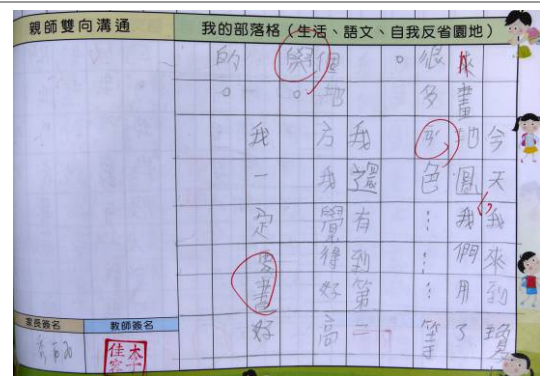 親師雙向溝通
我的部落格（生活、語文、自我反省園地）
今天我來到瓊
畫地圖我們用了
很多形色⋯⋯⋯等
。
我還有到第二
個地方我覺得好高
學。
我一定要畫好
的。
家長簽名
教師簽名